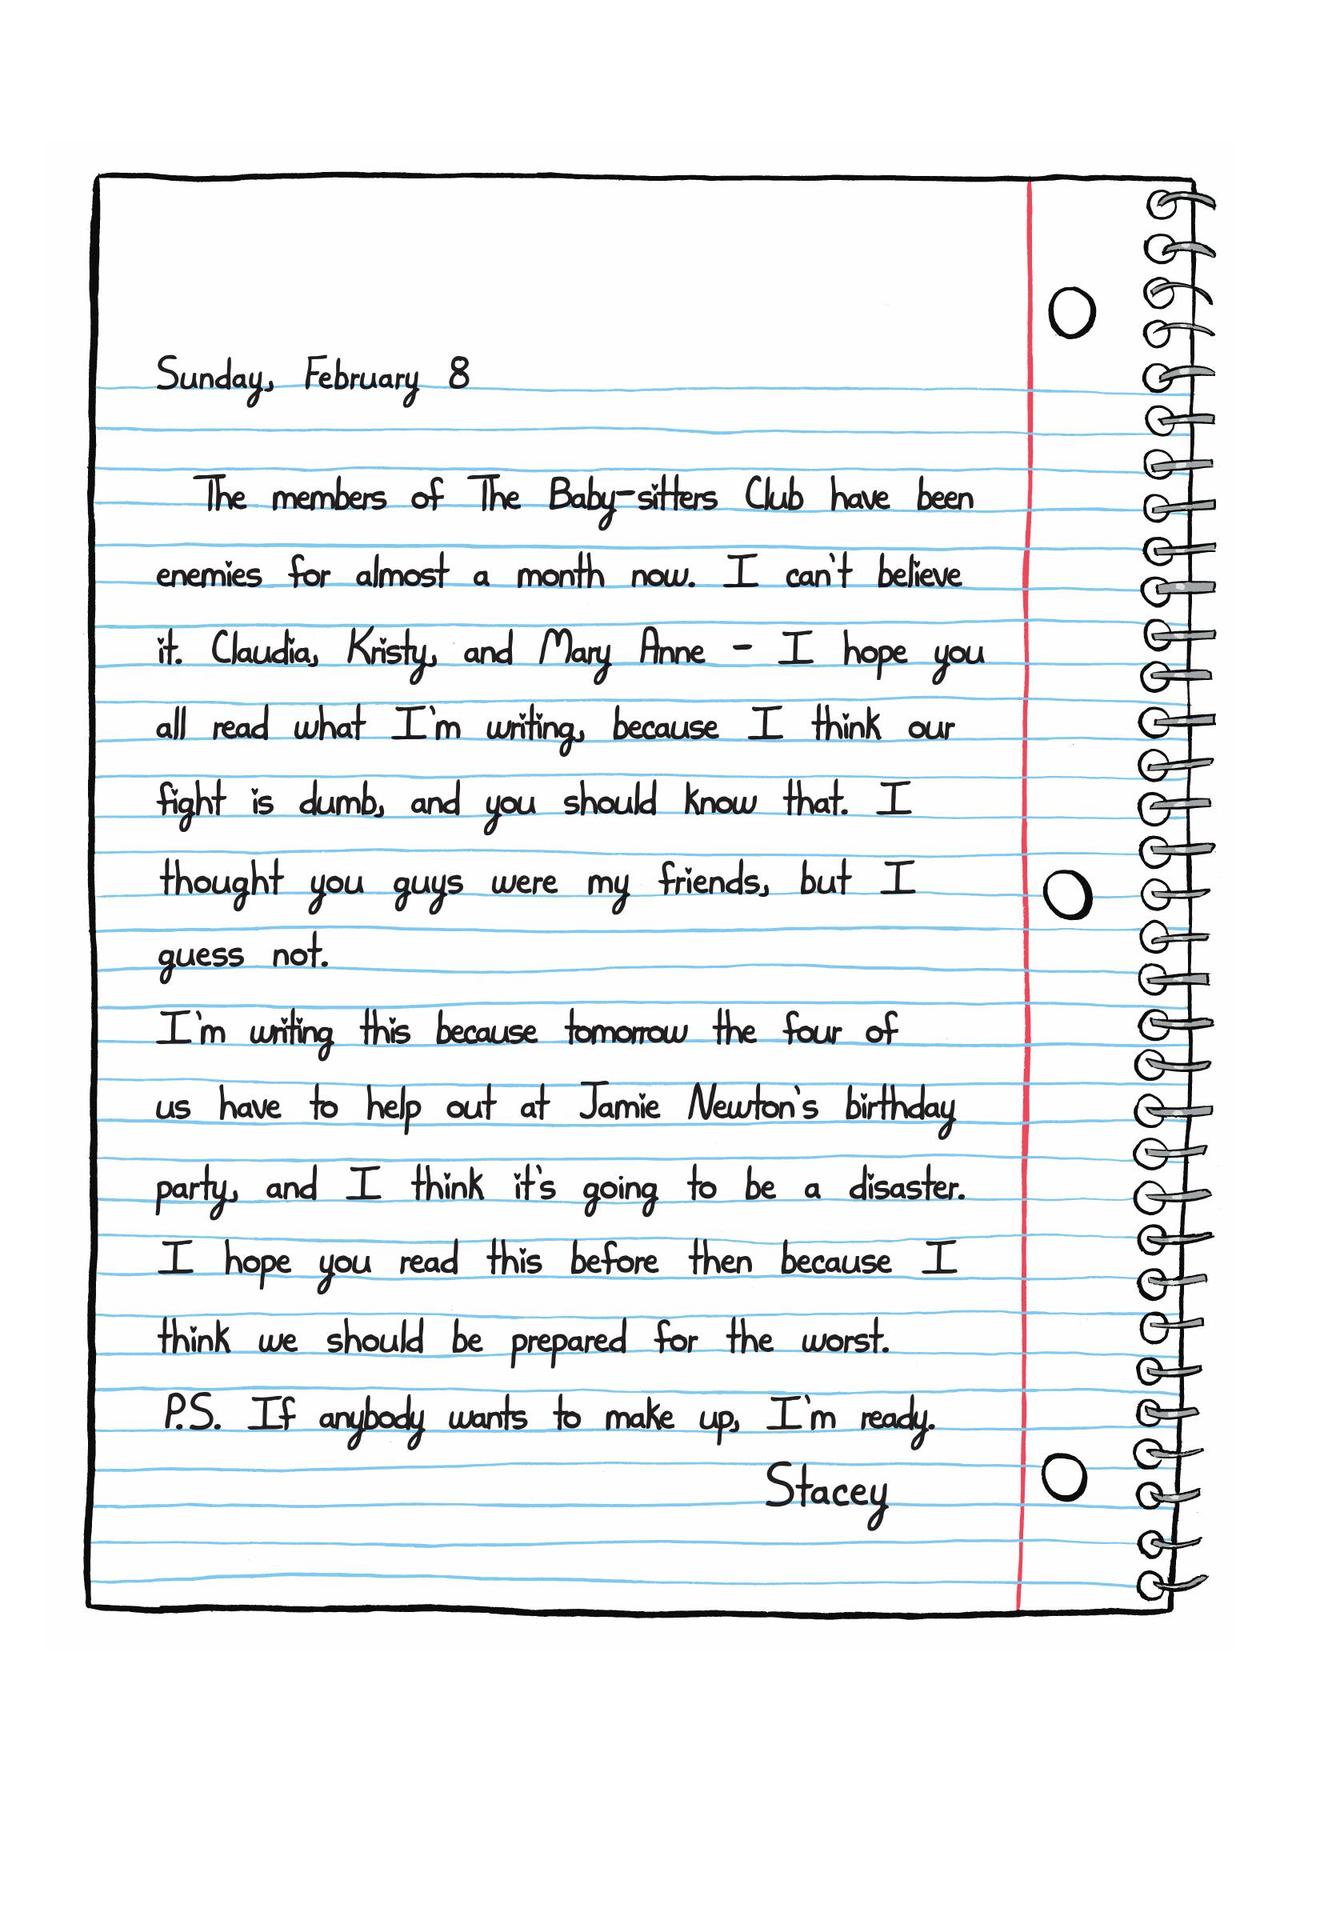 Sunday, February 8
The members of The Baby-sitters Club have been
enemies for almost a month now. I can't believe
it. Claudia, Kristy, and Mary Anne - I hope you
all read what I'm writing, because I think our
fight is dumb, and you should know that. I
thought you guys were my friends, but I
guess not.
I'm writing this because tomorrow the four of
us have to help out at Jamie Newton's birthday
party, and I think it's going to be a disaster.
I hope you read this before then because I
think we should be prepared for the worst.
P.S. If anybody wants to make up, I'm ready.
Stacey